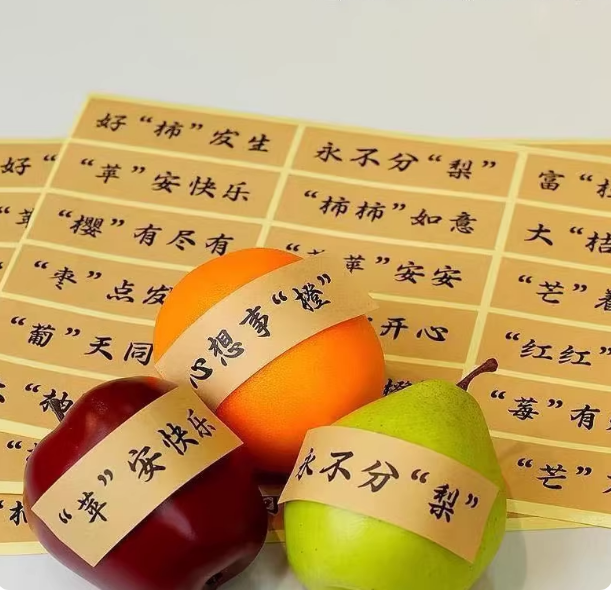 好“柿”发生
永不分“梨”
富“
好“
“苹”安快乐
“柿柿”如意
大“桔
“樱”有尽有
苹”安安
“芒”着
“枣”点发
开心
“红红”
“葡”天同
“莓”有
“芒”
心想事“橙”
“苹”安快乐
永不分“梨”